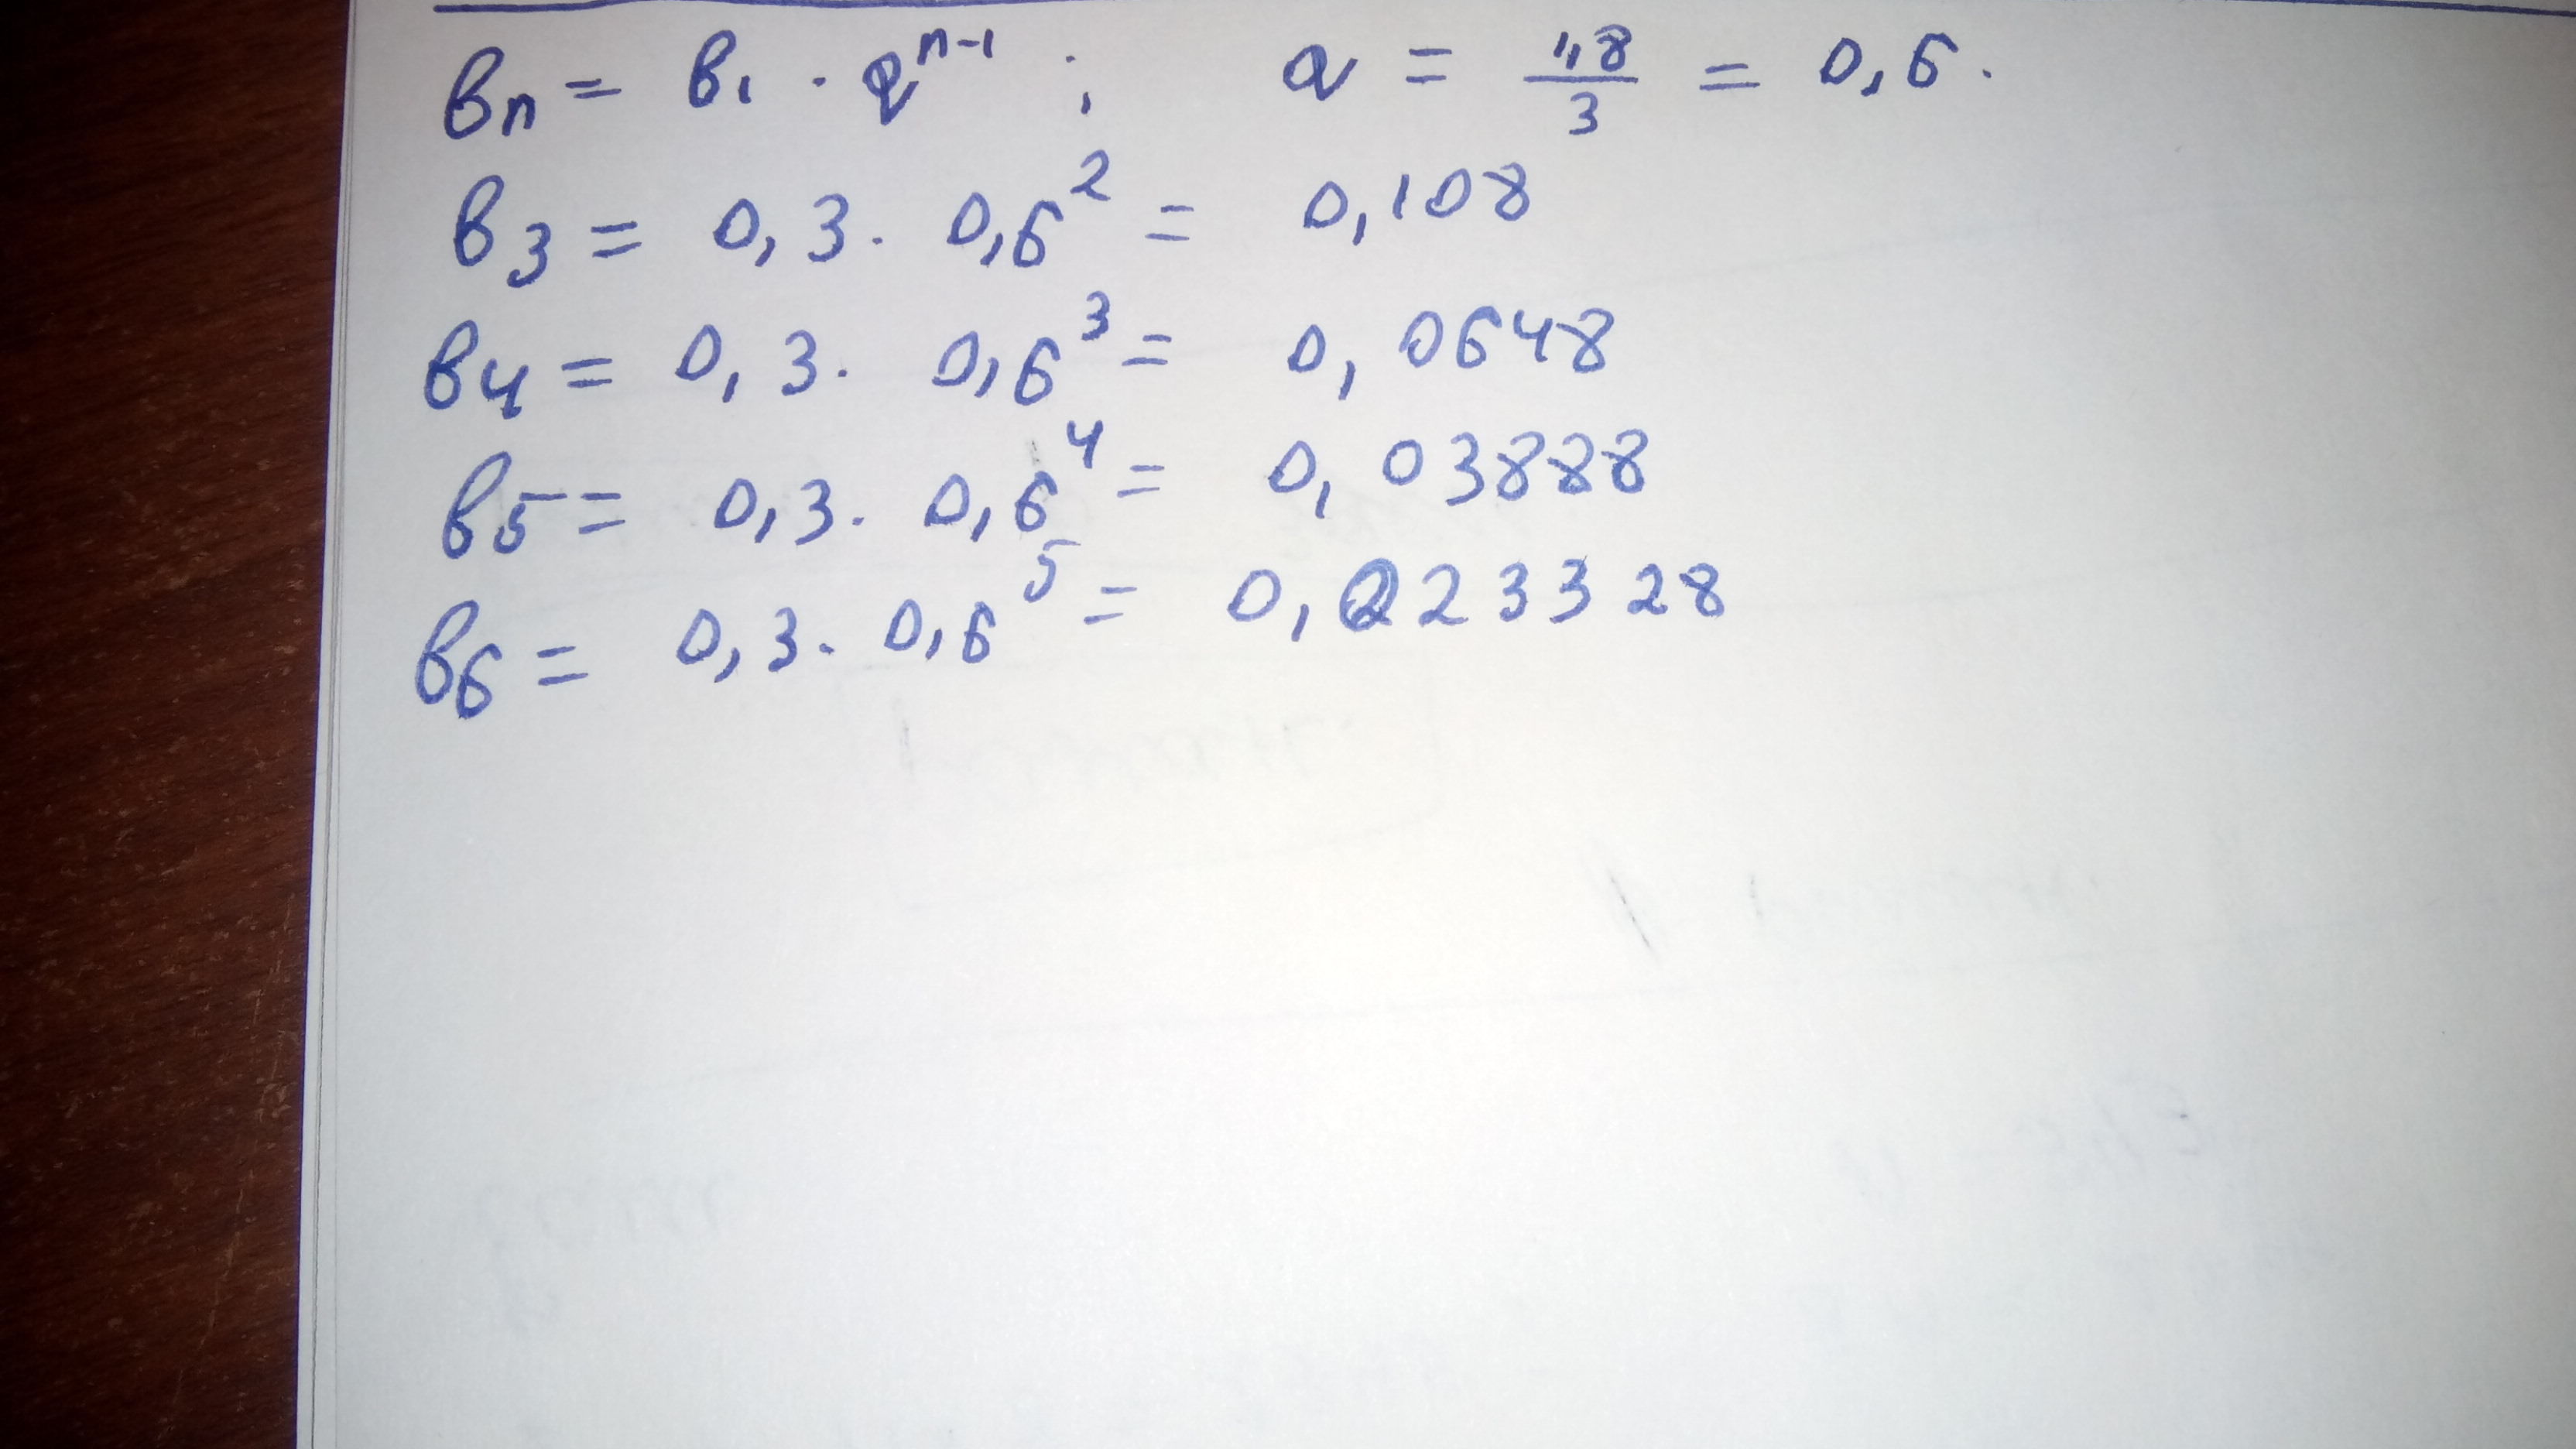 вn = в1 · q^n-1 ; q = 1,8/3 = 0,6.
в3 = 0,3 · 0,6^2 = 0,108
в4 = 0,3 · 0,6^3 = 0,0648
в5 = 0,3 · 0,6^4 = 0,03888
в6 = 0,3 · 0,6^5 = 0,223328